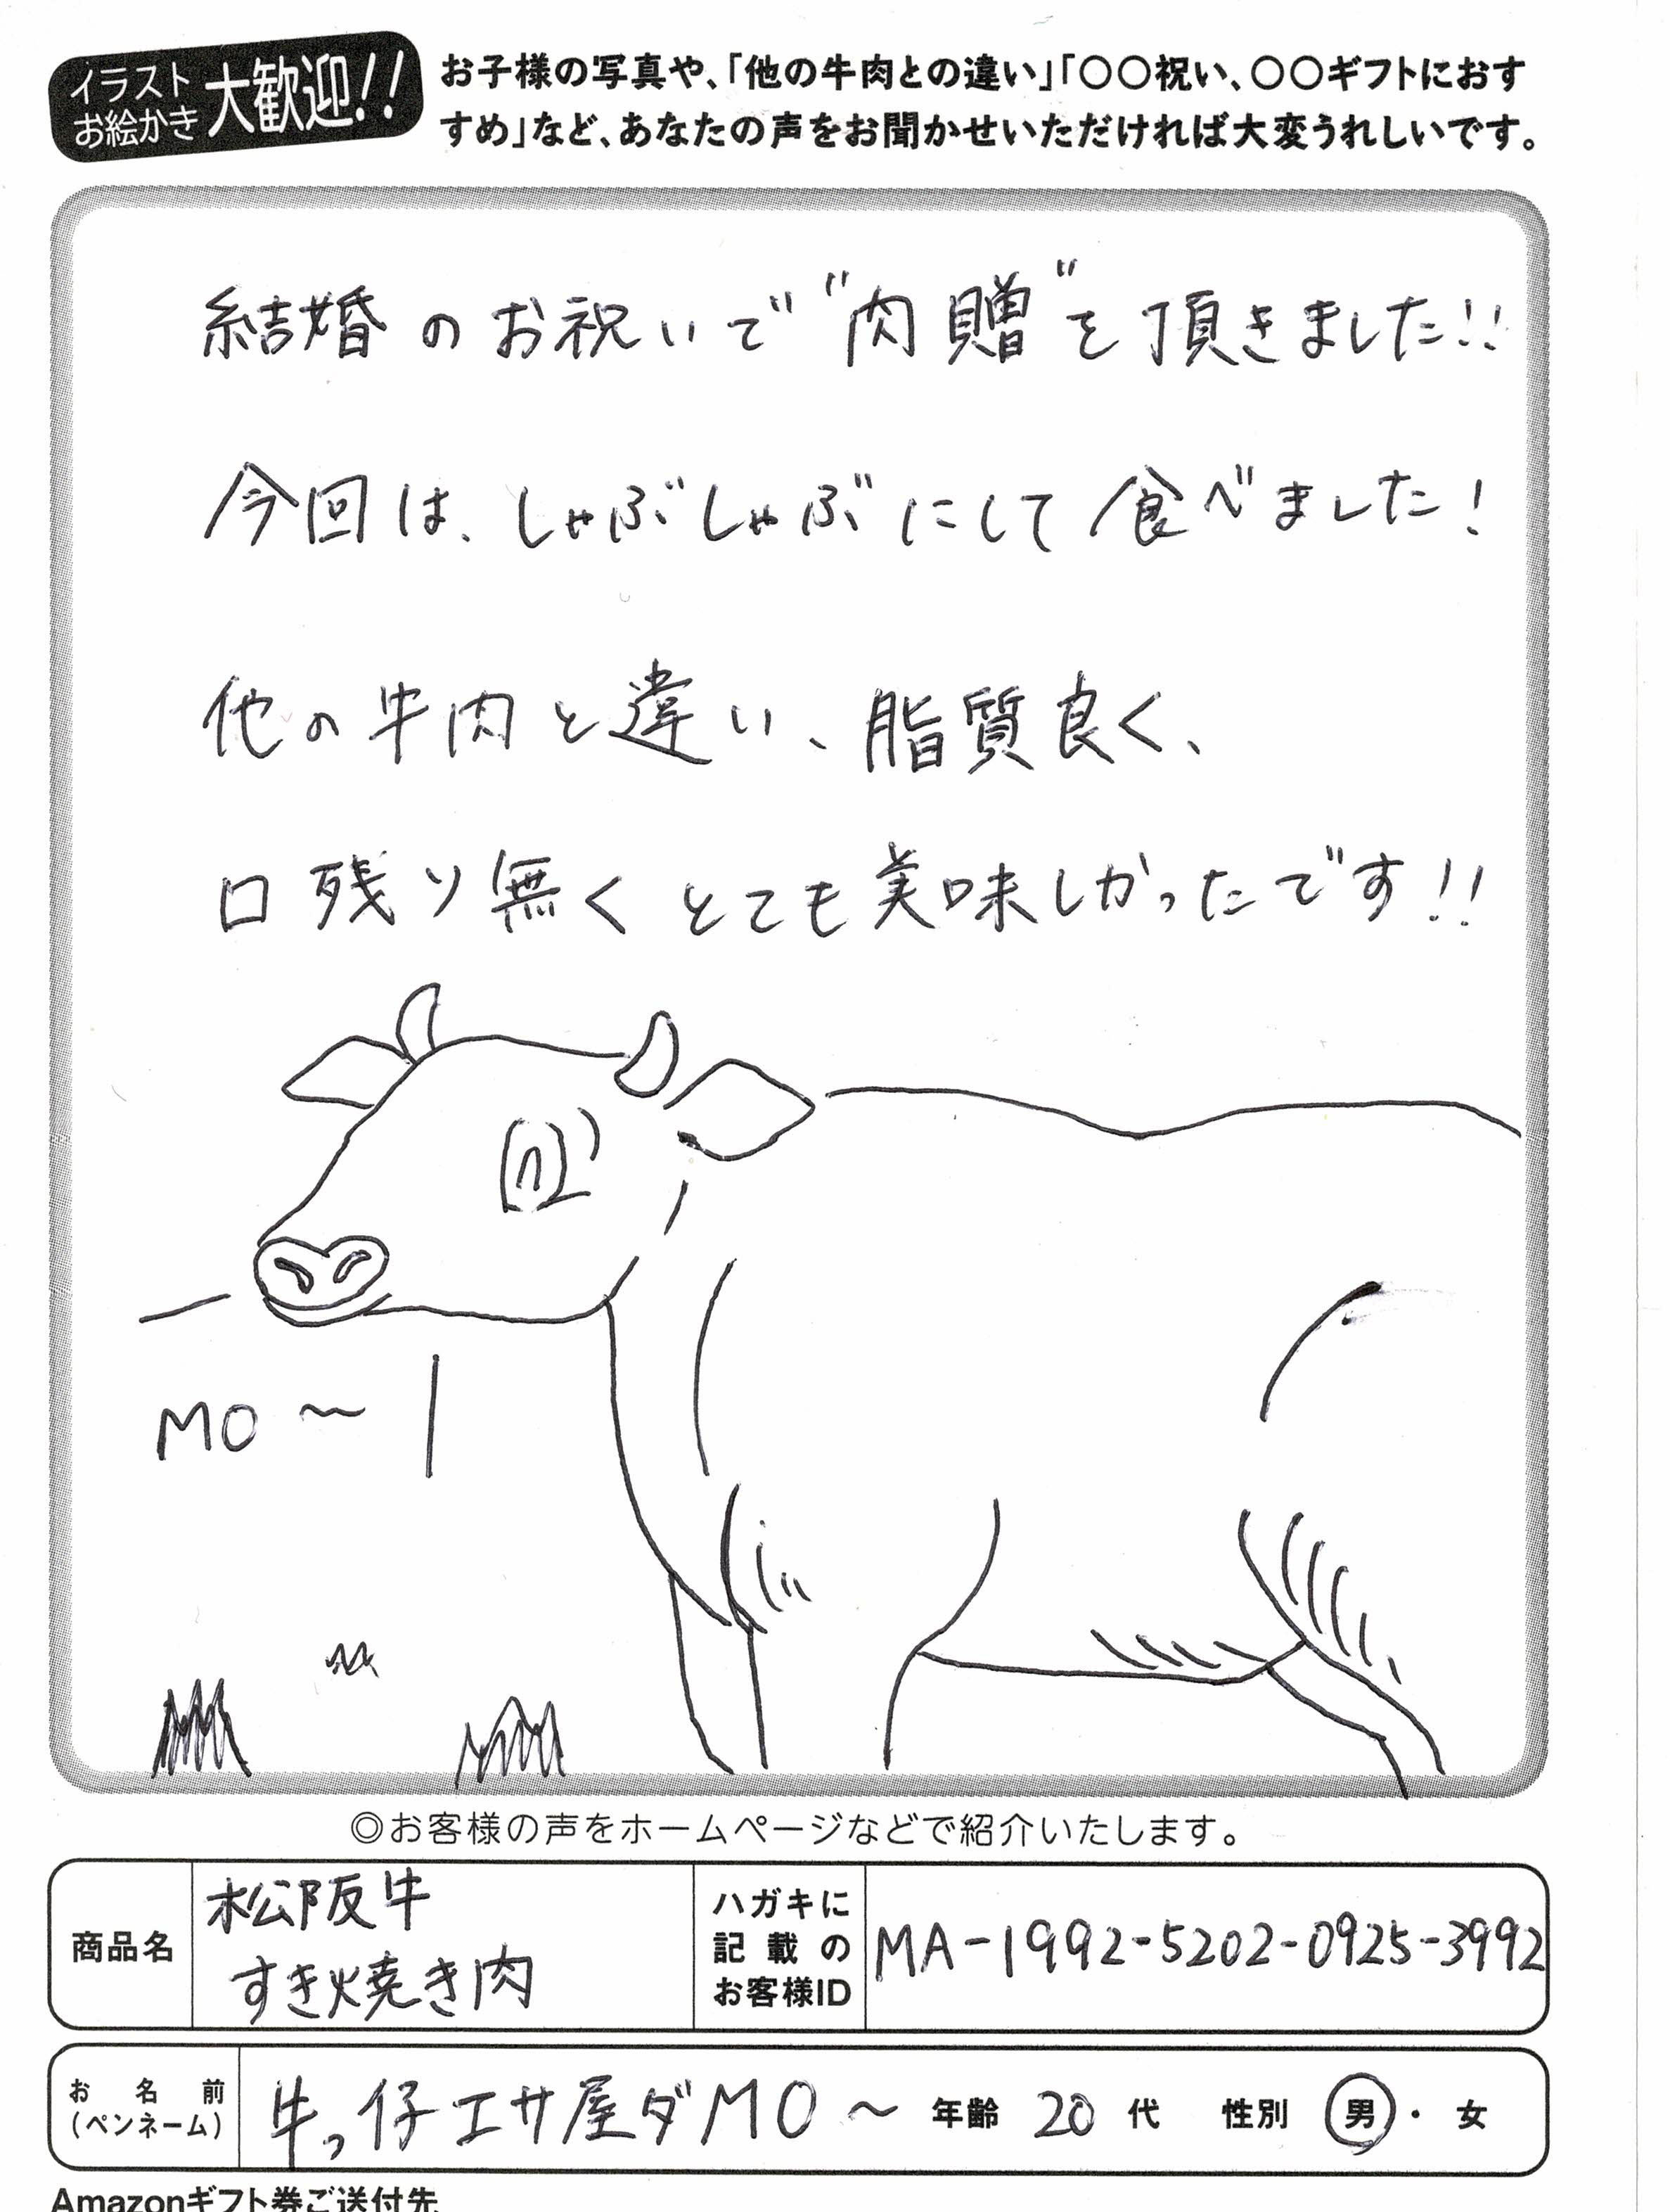 イラスト
お絵かき
大歓迎!!
お子様の写真や、「他の牛肉との違い」「〇〇祝い、〇〇ギフトにおす
すめ」など、あなたの声をお聞かせいただければ大変うれしいです。
結婚のお祝いで"肉贈"を頂きました!!
今回は、しゃぶしゃぶにして食べました!
他の牛肉と違い、脂質良く、
口残り無くとても美味しかったです!!
MO〜
◎お客様の声をホームページなどで紹介いたします。
商品名
松阪牛
すき焼き肉
ハガキに
記載の
お客様ID
MA-1992-5202-0925-3992
お名前
(ペンネーム)
牛っ仔エサ屋ダMO〜
年齢 20 代 性別 男・女
Amazonギフト券ご送付先